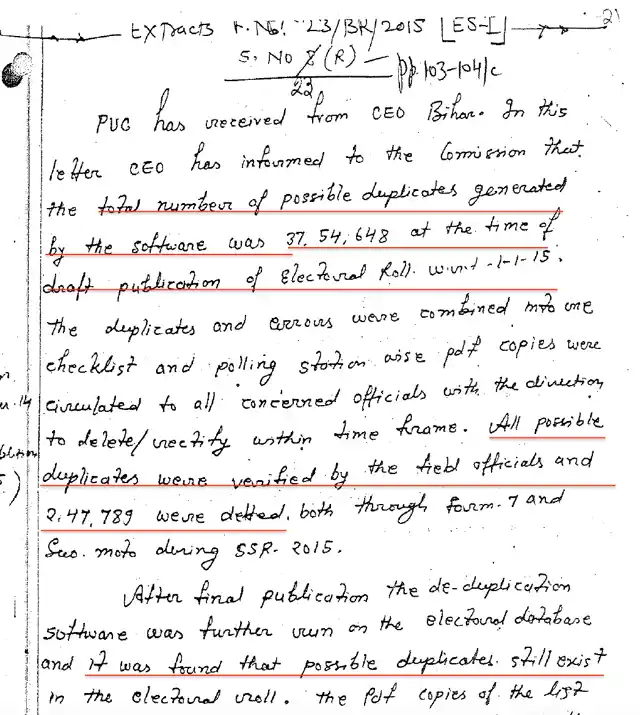 21
Extracts F. No! 23/BR/2015 [ES-I]
S. No 8 (R) — pp. 103-104/c
23
PUC has received from CEO Bihar. In this
letter CEO has informed to the Comission that
the total number of possible duplicates generated
by the software was 37,54,648 at the time of
draft publication of Electoral Roll. w.r.t -1-1-15.
The duplicates and errors were combined into one
checklist and polling station wise pdf copies were
circulated to all concerned officials with the direction
to delete/rectify within time frame. All possible
duplicates were verified by the field officials and
2,47,789 were deleted. both through form-7 and
Suo. moto during SSR-2015.
After final publication the de-duplication
software was further run on the electoral database
and it was found that possible duplicates still exist
in the electoral roll. The Pdf copies of the list